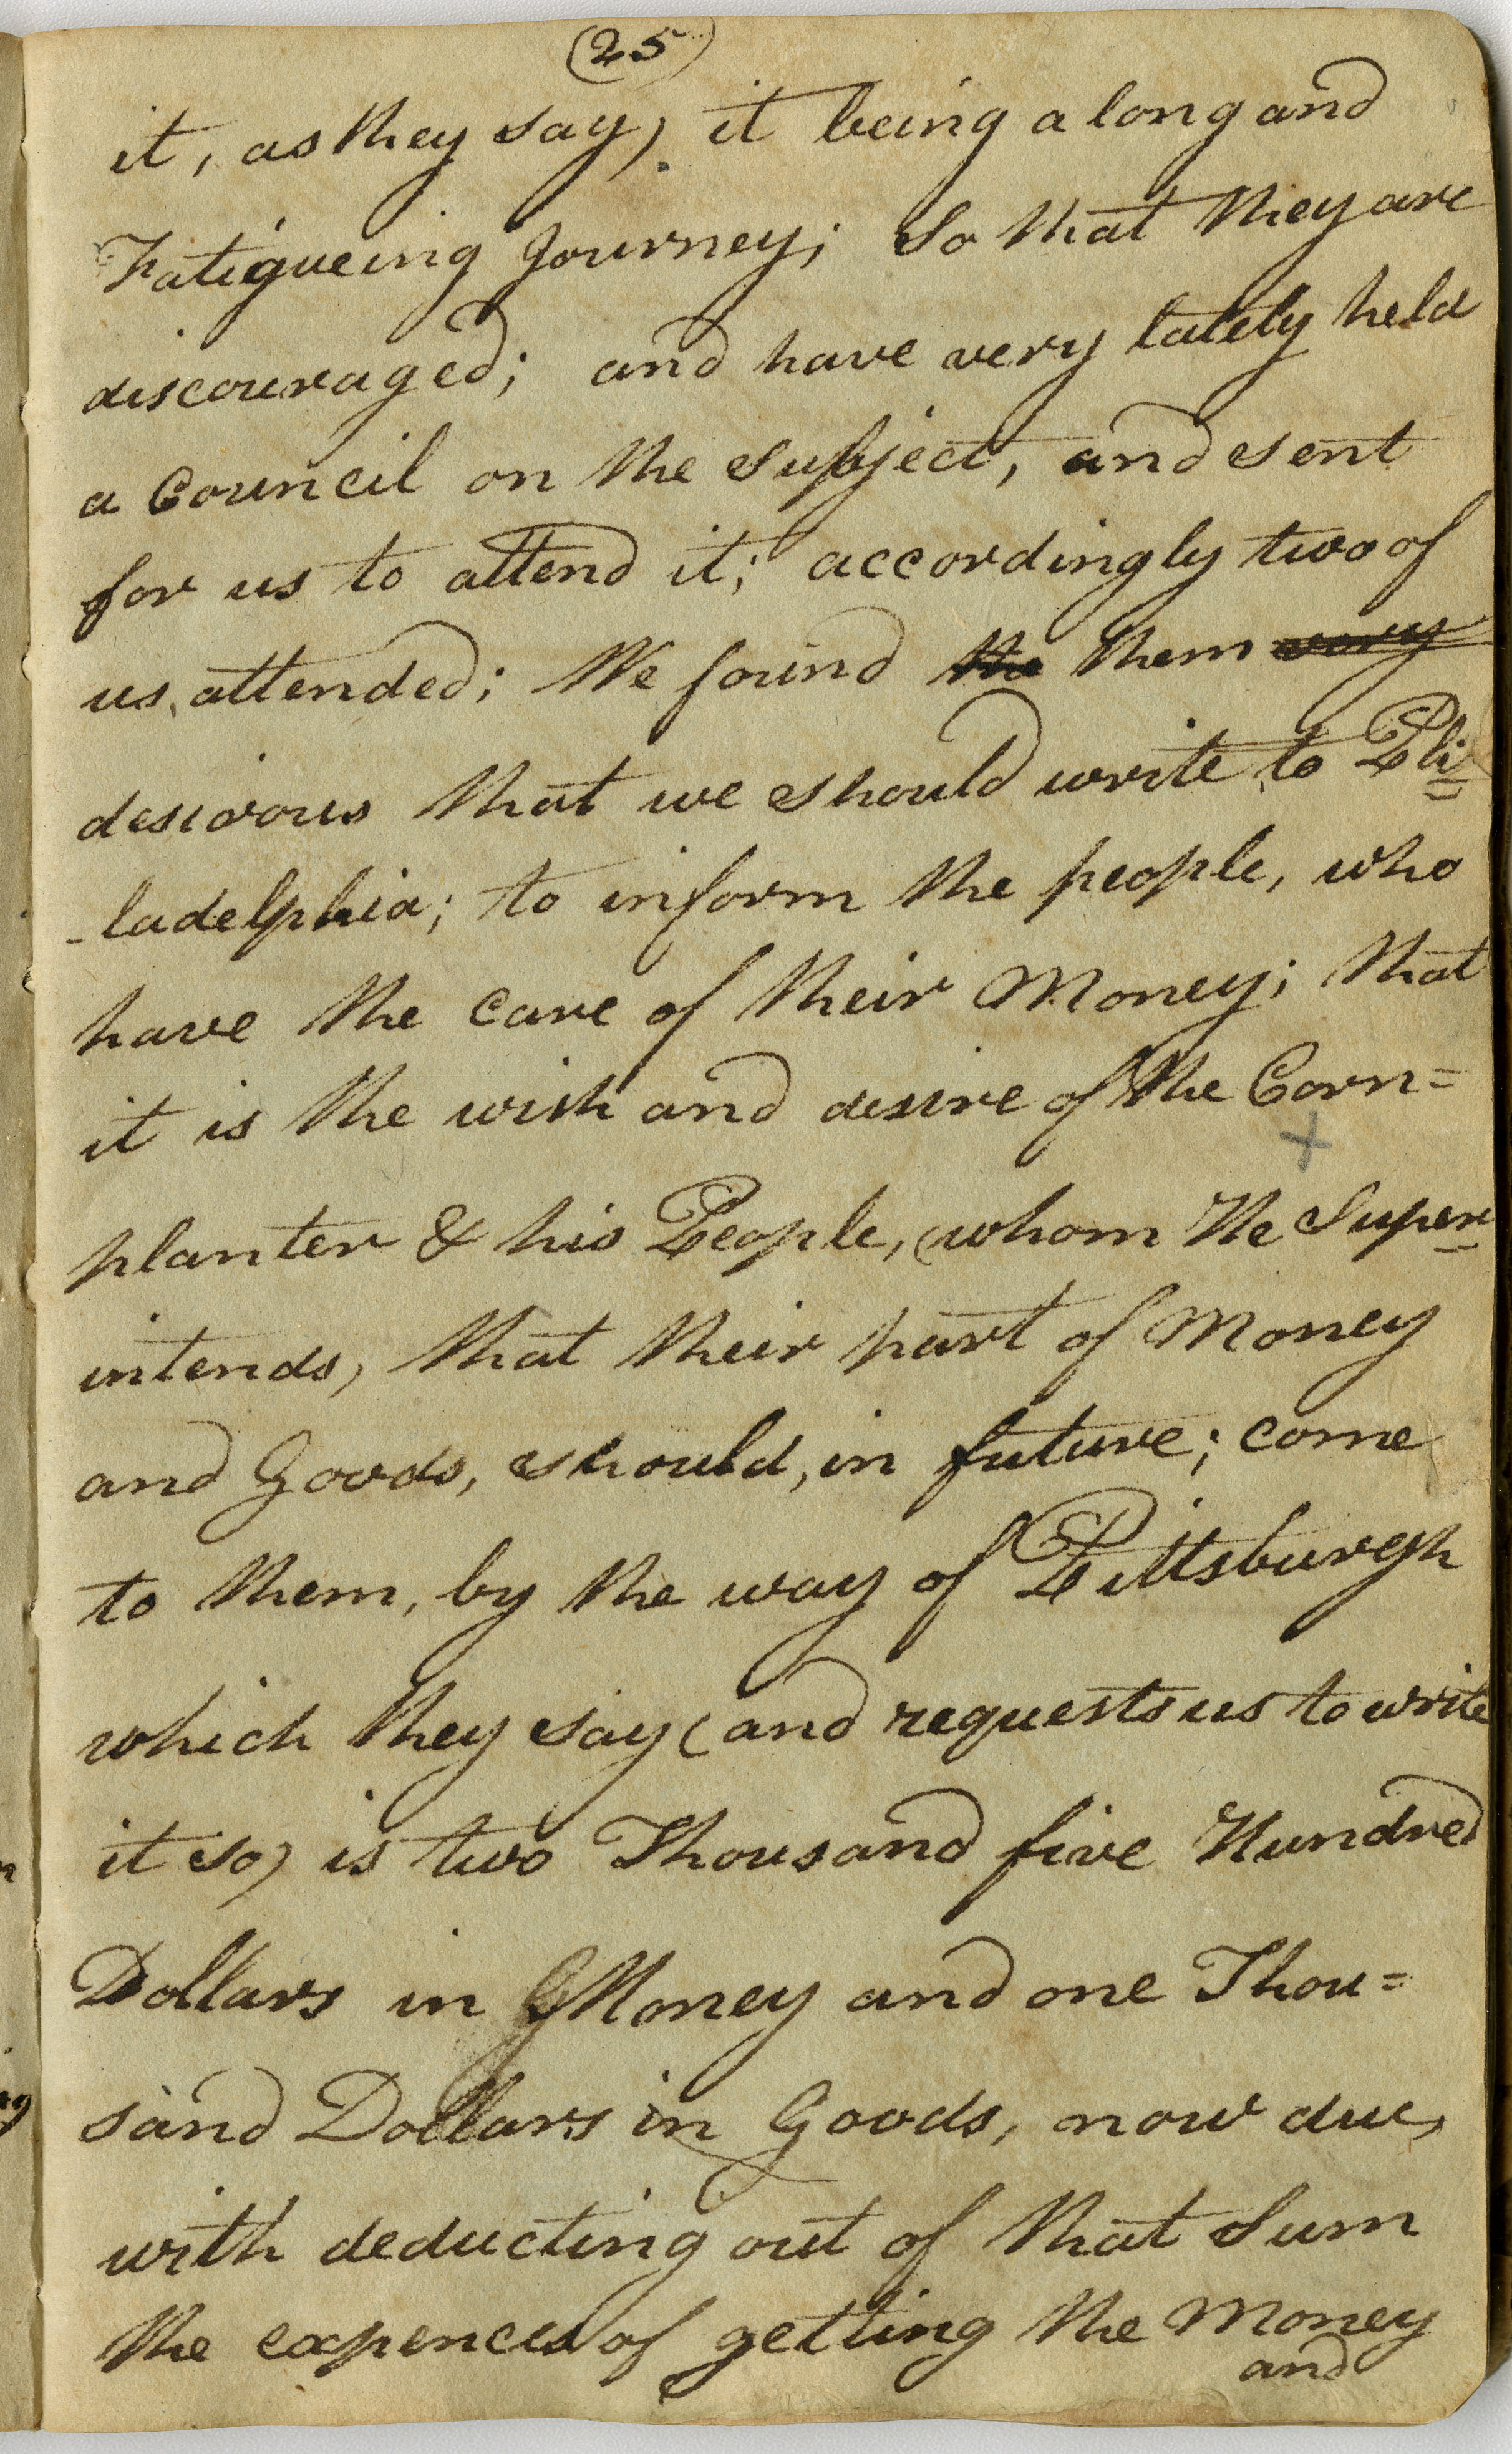 (25)
it, as they say) it being a long and
Fatigueing Journey; So that they are
discouraged; and have very lately held
a Council on the Subject, and sent
for us to attend it; accordingly two of
us, attended; We found the them very
desirous that we should write to Phi=
-ladelphia; to inform the people, who
have the care of their Money; that
it is the wish and desire of the Corn=
planter & his People, (whom He Super=
intends, that their part of Money
and Goods, should, in future; come
to them, by the way of Pittsburgh
which they say (and requests us to write
it so) is two Thousand five Hundred
Dollars in Money and one Thou=
sand Dollars in Goods, now due,
with deducting out of that Sum
the expences of getting the Money
and